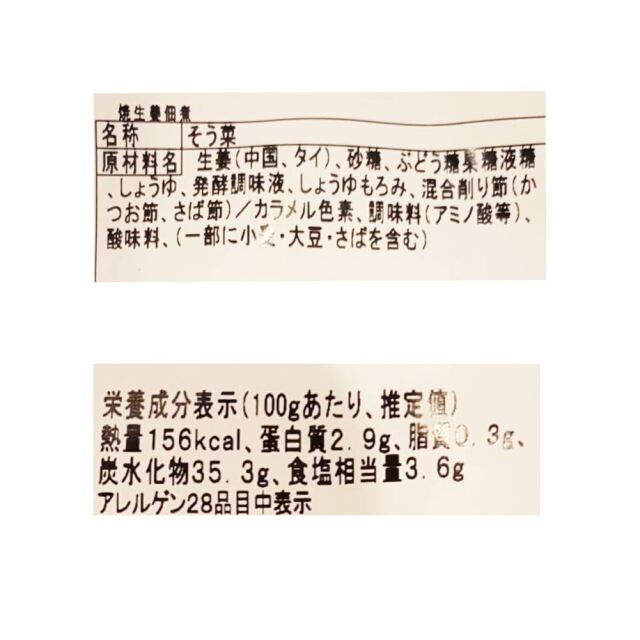 焼生姜佃煮
名称 そう菜
原材料名 生姜(中国、タイ)、砂糖、ぶどう糖果糖液糖
、しょうゆ、発酵調味液、しょうゆもろみ、混合削り節(か
つお節、さば節)/カラメル色素、調味料(アミノ酸等)、
酸味料、(一部に小麦・大豆・さばを含む)
栄養成分表示(100gあたり、推定値)
熱量156kcal、蛋白質2.9g、脂質0.3g、
炭水化物35.3g、食塩相当量3.6g
アレルゲン28品目中表示